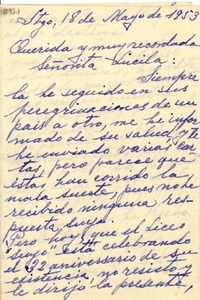 Stgo, 18 de Mayo de 1953
Querida y muy recordada
Señorita Lucila:
Siempre
la he seguido en sus
peregrinaciones de un
país a otro, me he infor
mado de su salud y le
he enviado varias car
tas, pero parece que
éstas han corrido la
mala suerte, pues no he
recibido ninguna res
puesta suya.
Pero hoy que el Liceo
suyo está celebrando
el 32 aniversario de su
existencia, no resisto y
le dirijo la presente,